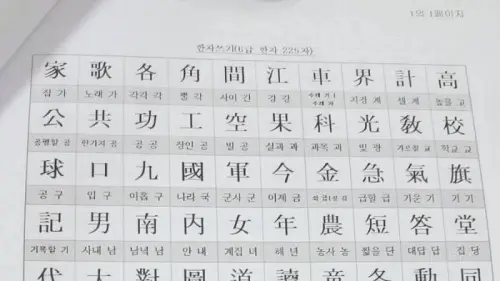 1의 1페이지
한자쓰기(6급 한자 225자)
家 歌 各 角 間 江 車 界 計 高
집 가 노래 가 각각 각 뿔 각 사이 간 강 강 수레 거 / 수레 차 지경 계 셀 계 높을 고
公 共 功 工 空 果 科 光 敎 校
공평할 공 한가지 공 공 공 장인 공 빌 공 실과 과 과목 과 빛 광 가르칠 교 학교 교
球 口 九 國 軍 今 金 急 氣 旗
공 구 입 구 아홉 구 나라 국 군사 군 이제 금 쇠 금(성 김) 급할 급 기운 기 기 기
記 男 南 內 女 年 農 短 答 堂
기록할 기 사내 남 남녘 남 안 내 계집 녀 해 년 농사 농 짧을 단 대답 답 집 당
代 大 對 圖 道 讀 童 冬 動 同